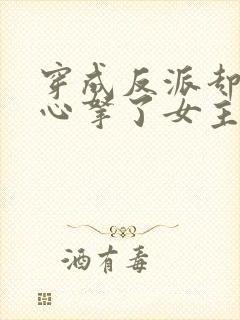 穿成反派却
心掌了女主
酒有毒